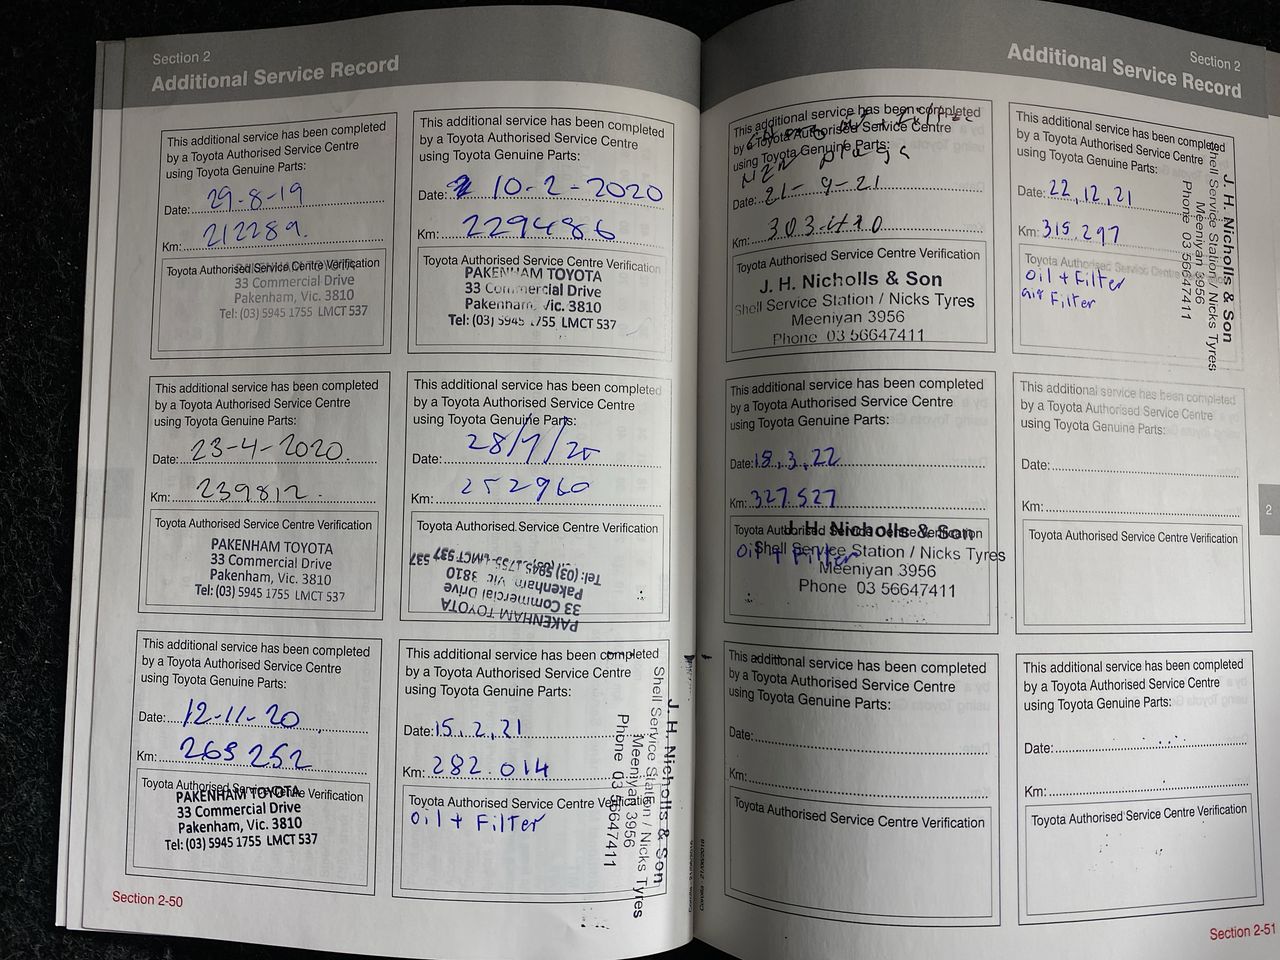 Section 2
Additional Service Record
This additional service has been completed
by a Toyota Authorised Service Centre
using Toyota Genuine Parts:
Date: 29-8-19
Km: 212289.
Toyota Authorised Service Centre Verification
PAKENHAM TOYOTA
33 Commercial Drive
Pakenham, Vic. 3810
Tel: (03) 5945 1755 LMCT 537
This additional service has been completed
by a Toyota Authorised Service Centre
using Toyota Genuine Parts:
Date: 10-2-2020
Km: 229486
Toyota Authorised Service Centre Verification
PAKENHAM TOYOTA
33 Commercial Drive
Pakenham, Vic. 3810
Tel: (03) 5945 1755 LMCT 537
This additional service has been completed
by a Toyota Authorised Service Centre
using Toyota Genuine Parts:
Date: 23-4-2020.
Km: 239812.
Toyota Authorised Service Centre Verification
PAKENHAM TOYOTA
33 Commercial Drive
Pakenham, Vic. 3810
Tel: (03) 5945 1755 LMCT 537
This additional service has been completed
by a Toyota Authorised Service Centre
using Toyota Genuine Parts:
Date: 28/7/20
Km: 252960
Toyota Authorised Service Centre Verification
PAKENHAM TOYOTA
33 Commercial Drive
Pakenham Vic 3810
Tel: (03) 5945 1755 LMCT 537
This additional service has been completed
by a Toyota Authorised Service Centre
using Toyota Genuine Parts:
Date: 12-11-20
Km: 265252
Toyota Authorised Service Centre Verification
PAKENHAM TOYOTA
33 Commercial Drive
Pakenham, Vic. 3810
Tel: (03) 5945 1755 LMCT 537
This additional service has been completed
by a Toyota Authorised Service Centre
using Toyota Genuine Parts:
Date: 15.2.21
Km: 282.014
Toyota Authorised Service Centre Verification
Oil + Filter
J. H. Nicholls & Son
Shell Service Station / Nicks Tyres
Meeniyan 3956
Phone 03 56647411
Section 2-50
Section 2
Additional Service Record
This additional service has been completed
by a Toyota Authorised Service Centre
using Toyota Genuine Parts:
Date: 21-9-21
Km: 303.410
Toyota Authorised Service Centre Verification
J. H. Nicholls & Son
Shell Service Station / Nicks Tyres
Meeniyan 3956
Phone 03 56647411
This additional service has been completed
by a Toyota Authorised Service Centre
using Toyota Genuine Parts:
Date: 22.12.21
Km: 315.297
Toyota Authorised Service Centre
Oil + Filter
air Filter
J. H. Nicholls & Son
Shell Service Station / Nicks Tyres
Meeniyan 3956
Phone 03 56647411
This additional service has been completed
by a Toyota Authorised Service Centre
using Toyota Genuine Parts:
Date: 18.3.22
Km: 327.527
Toyota Authorised Service Centre Verification
Oil + Filter
J. H. Nicholls & Son
Shell Service Station / Nicks Tyres
Meeniyan 3956
Phone 03 56647411
This additional service has been completed
by a Toyota Authorised Service Centre
using Toyota Genuine Parts:
Date:
Km:
Toyota Authorised Service Centre Verification
This additional service has been completed
by a Toyota Authorised Service Centre
using Toyota Genuine Parts:
Date:
Km:
Toyota Authorised Service Centre Verification
This additional service has been completed
by a Toyota Authorised Service Centre
using Toyota Genuine Parts:
Date:
Km:
Toyota Authorised Service Centre Verification
2
Section 2-51